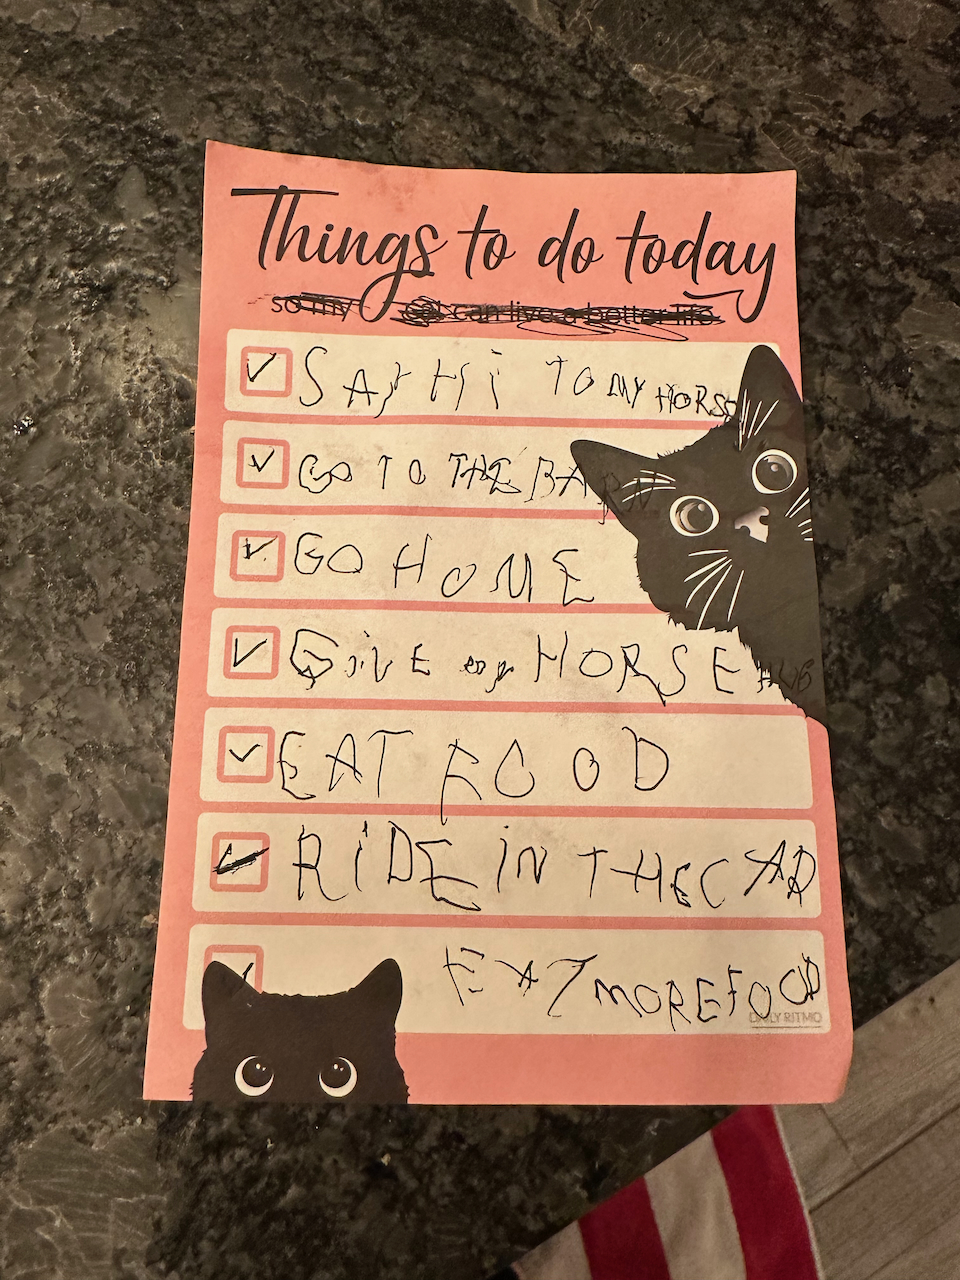 Things to do today
so my cat can live a better life
SAY HI TO MY HORSE
GO TO THE BARN
GO HOME
GiVE HORSE HUG
EAT FOOD
RiDE iN THE CAR
EAT MORE FOOD
DAILY RITMO